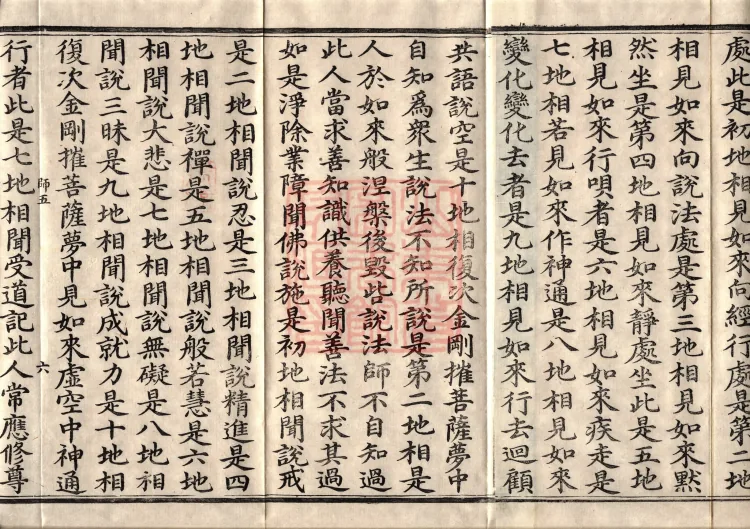 處此是初地相見如來向經行處是第二地
相見如來向說法處是第三地相見如來默
然坐是第四地相見如來靜處坐此是五地
相見如來行唄者是六地相見如來疾走是
七地相若見如來作神通是八地相見如來
變化變化去者是九地相見如來行去迴顧
共語說空是十地相復次金剛摧菩薩夢中
自知為眾生說法不知所說是第二地相是
人於如來般涅槃後毀呰說法師不自知過
此人當求善知識供養聽聞善法不求其過
如是淨除業障聞佛說施是初地相聞說戒
是二地相聞說忍是三地相聞說精進是四
地相聞說禪是五地相聞說般若慧是六地
相聞說大悲是七地相聞說無礙是八地相
聞說三昧是九地相聞說成就力是十地相
復次金剛摧菩薩夢中見如來虛空中神通
師五 六
行者此是七地相聞受道記此人常應修尊